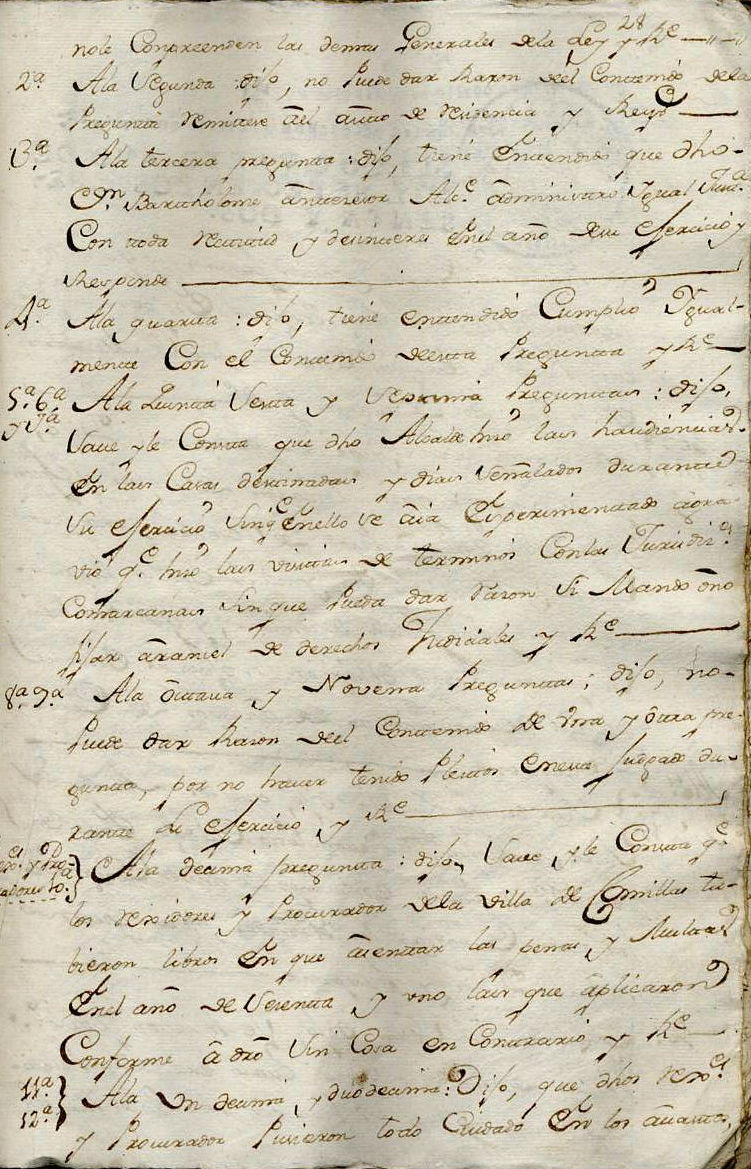 28
nole Conpreenden las demas Generales dela Ley y Re
2ª Ala Segunda: dijo, no Puede dar Razon del Contenido dela
Pregunta remitese ael auto de residencia y Respe
3ª Ala tercera pregunta: dijo, tiene Entendido que dho
Dn Bartholome antecesor Alce administro Igual Justª
Con toda rectitud y desinteres Enel año desu Ejercicio y
Responde
4ª Ala quarta: dijo, tiene entendido Cumplio Igual-
mente Con el Contenido desta Pregunta y Re
5ª 6ª y 7ª Ala Quinta Sesta y Septima Preguntas: dijo,
Save y le Consta que dho Alcalde hizo las haudiencias
En las Casas destinadas y dias señalados durante
Su Ejercicio Sin qe Enello se aia Esperimentado agra-
vio qe hizo las visitas de terminos Conlas Jurisdics
Comarcanas Sin que Pueda dar razon Si Mando ono
fijar aranzel de derechos Judiciales y Re
8ª 9ª Ala Octava y Novena Preguntas; dijo, no
Puede dar Razon del Contenido de Una y Otra pre-
gunta, por no haver tenido Pleitos Enese Juzgado du-
rante su Ejercicio y Re
y 10ª Ala decima pregunta: dijo, Save y le Consta qe
los rexidores y Procurador dela villa de Comillas tu-
bieron libros En que asentar las penas y Multas
Enel año de Sesenta y uno las que aplicaron
Conforme a dro Sin Cosa en Contrario y Re
11ª 12ª Ala Un decima y duodecima: Dijo, que dhos rexs
y Procurador Pusieron todo Cuidado En los abastos,